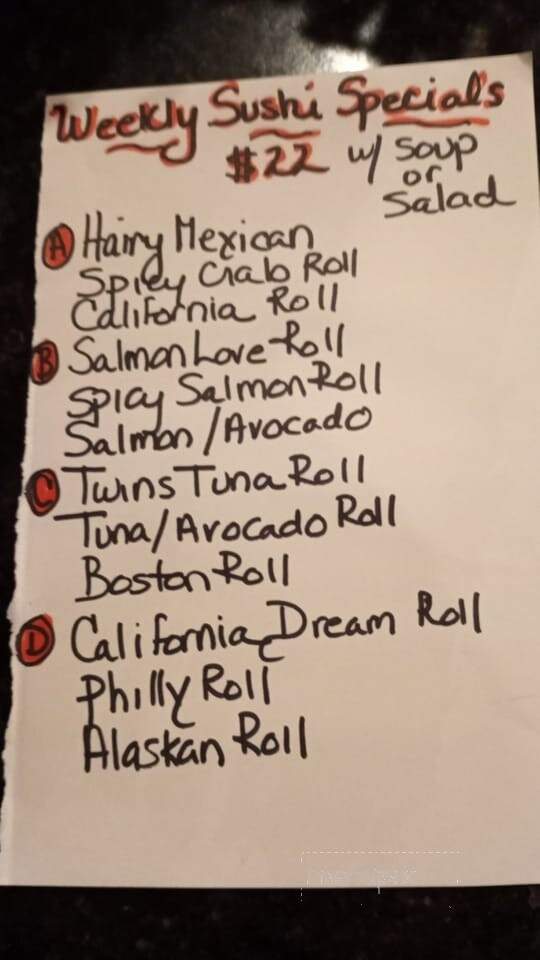 Weekly Sushi Special's
$22 w/ Soup
or
Salad
A Hairy Mexican
Spicy Crab Roll
California Roll
B Salmon Love Roll
Spicy Salmon Roll
Salmon/Avocado
C Twins Tuna Roll
Tuna/Avocado Roll
Boston Roll
D California Dream Roll
Philly Roll
Alaskan Roll